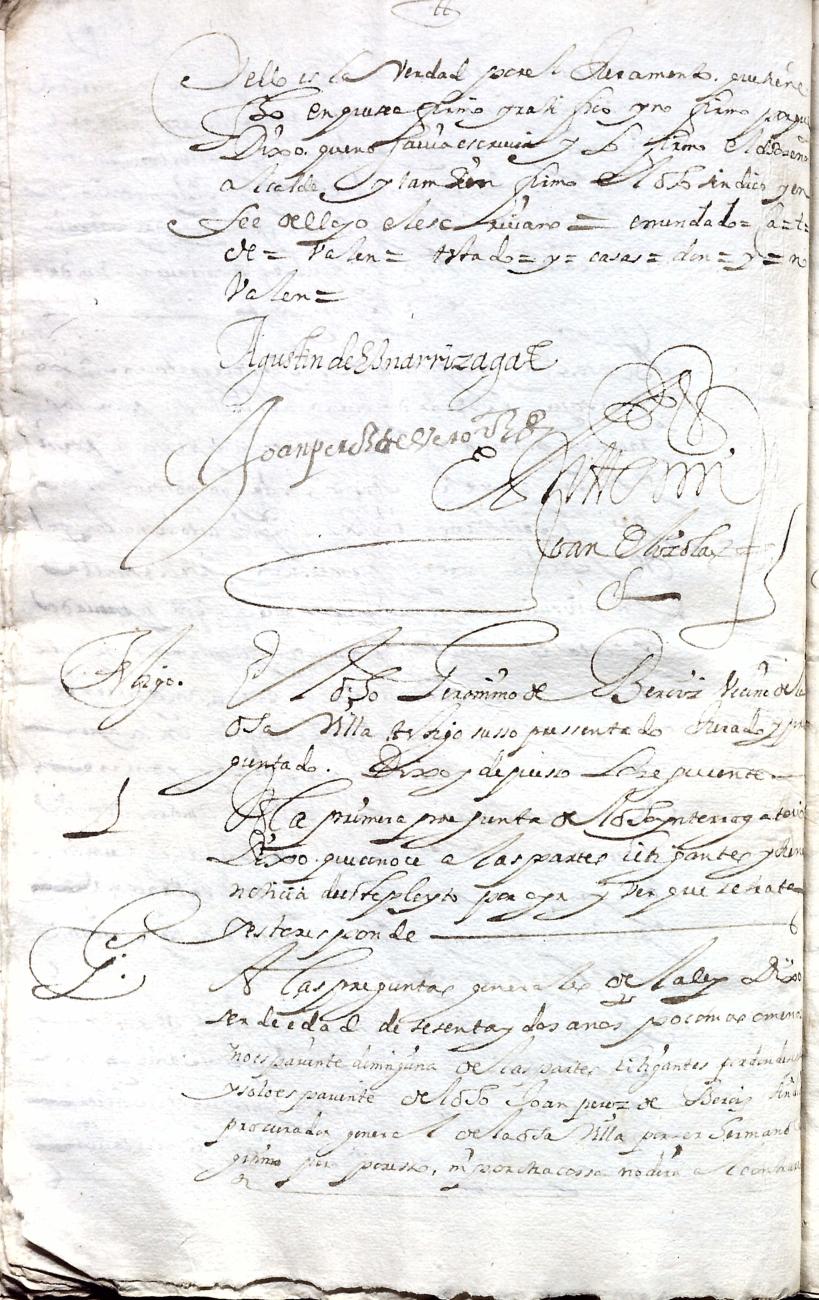 y ello es la verdad para el Juramento que tiene
dho en que se afirmo ratifico y no firmo porque
Dixo que no savia escrevir y lo firmo el dho señor
alcalde y tambien firmo el dho sindico y en
fee de ello yo el escrivano = emendado = a = t =
de = Valen = testado = y = casas = don = y = n
Valen =
Agustin de
Joan perez de
Ante mi
Joan
testigo.
El dho Jeronimo de Berciz vecino de la
dha Villa testigo susso pressentado Jurado y pre
guntado. Dixo y depuso lo siguiente
1
A la primera pregunta del dho ynterrogatorio
Dixo que conoce a las partes litigantes y tiene
noticia de este pleyto por oyr y ver que se trata
y esto responde
G.
A las preguntas generales de la ley Dixo
ser de edad de sesenta y dos anos poco mas o menos
no es pariente de ninguna de las partes litigantes
y solo es pariente del dho Joan perez de Berciz
procurador general de la dha Villa por ser hermano
pero por esto, ni por otra cossa no dira al contrario